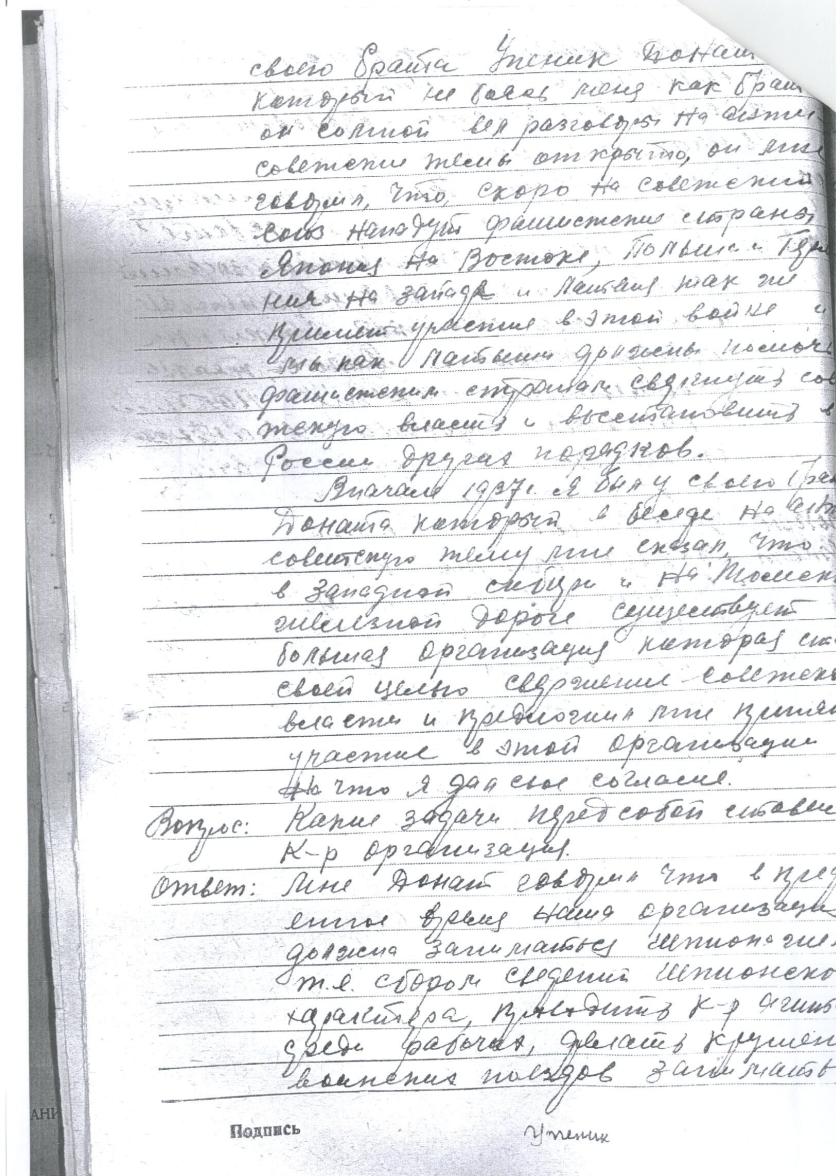 своего брата Ученик Донат
который не боясь меня как брат
он сомной вел разговоры на анти
советские темы открыто, он мне
говорил, что, скоро на советский
союз нападут фашистские страны
Япония на Востоке, Польша и Гер
ния на западе и Латвия так же
примет участие в этой войне и
мы как латыши должны помочь
фашистским странам свергнуть сов
тскую власть и восстановить в
России других порядков.
Вначале 1937г. я был у своего бра
Доната который в беседе на анти
советскую тему мне сказал, что
в Западной сибири и на Томск
железной дороге существует
большая организация которая ст
своей целью свержение советско
власти и предложил мне принят
участие в этой организации
на что я дал свое согласие.
Вопрос: Какие задачи перед собой ставил
К-р организация.
Ответ: Мне Донат говорил что в пред
енное время наша организаци
должна заниматься шпионаже
т.е. сбором сведений шпионско
характера, проводить к-р агит
среди рабочих, делать крушен
воинских поездов заниматьс
АНИ
Подпись Ученик